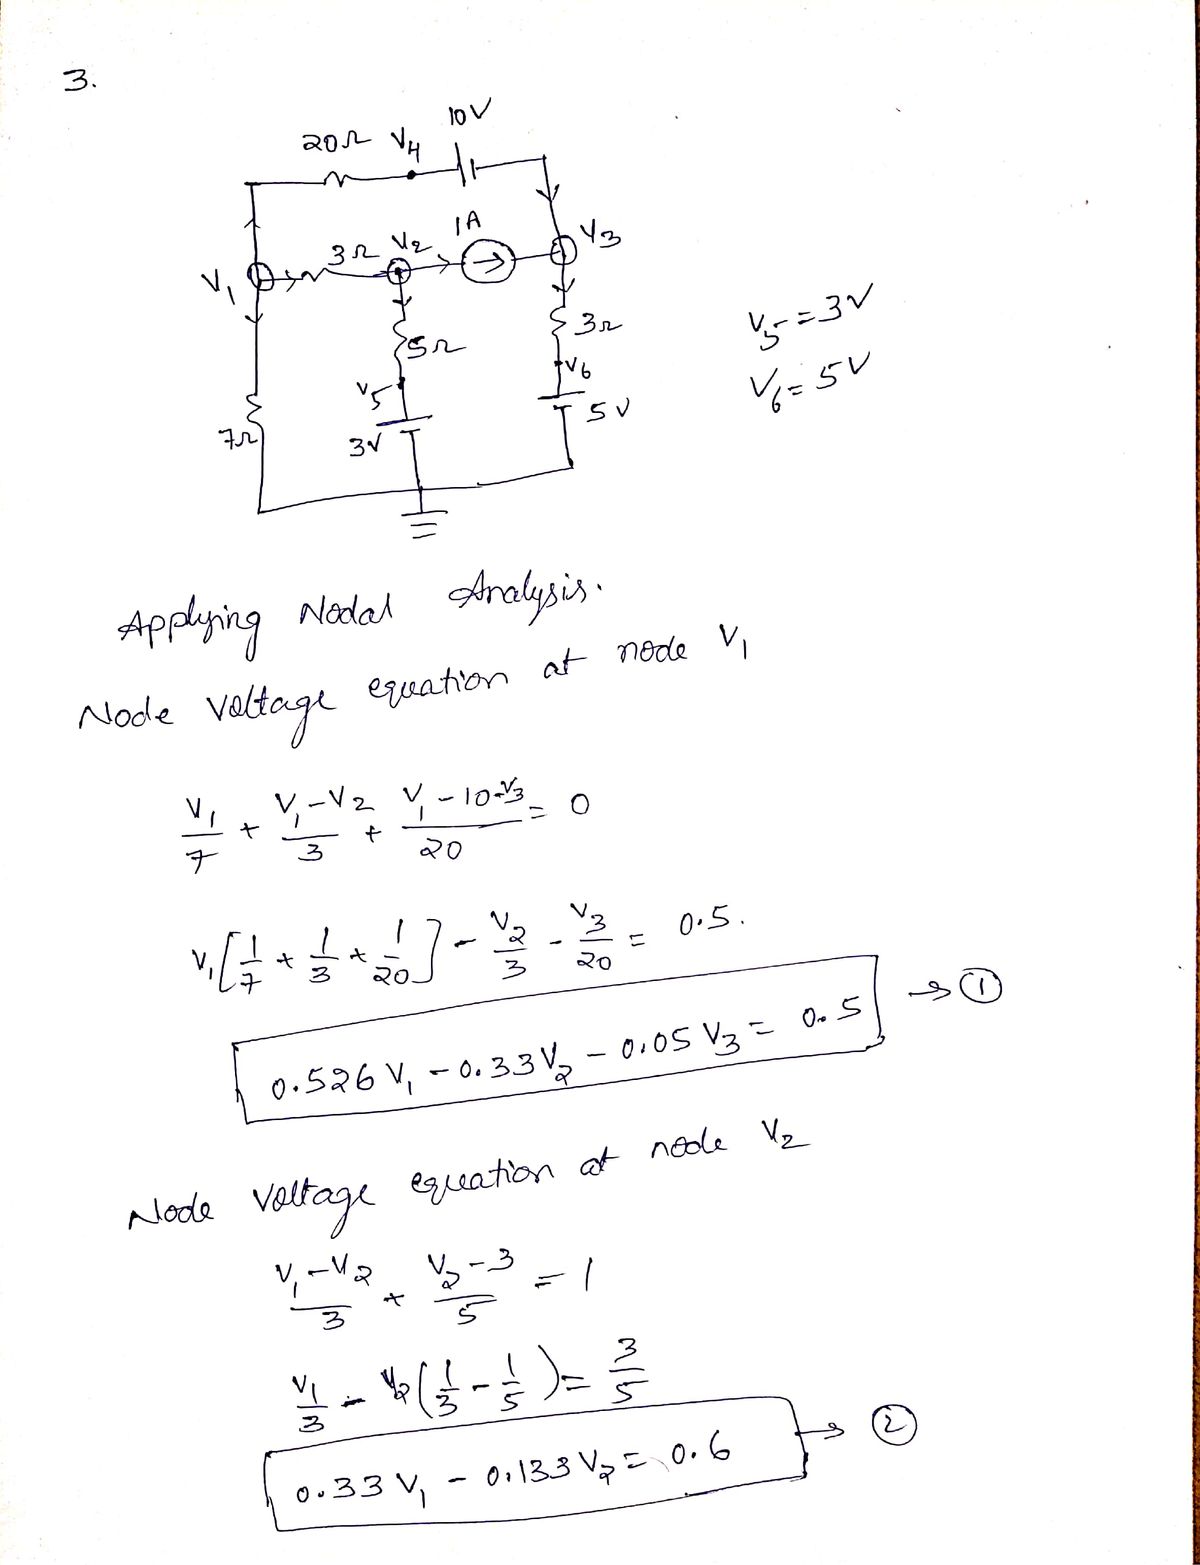 3.
10V
20Ω V4
1A
3Ω V2
V3
V1
3Ω
5Ω
V5 = 3V
V6
V5
V6 = 5V
5V
7Ω
3V
Applying Nodal Analysis.
Node Voltage equation at node V1
V1/7 + (V1-V2)/3 + (V1-10-V3)/20 = 0
V1[1/7 + 1/3 + 1/20] - V2/3 - V3/20 = 0.5.
0.526 V1 - 0.33V2 - 0.05 V3 = 0.5 → ①
Node Voltage equation at node V2
(V1-V2)/3 + (V2-3)/5 = 1
V1/3 - V2(1/3 - 1/5) = 3/5
0.33 V1 - 0.133 V2 = 0.6 → ②